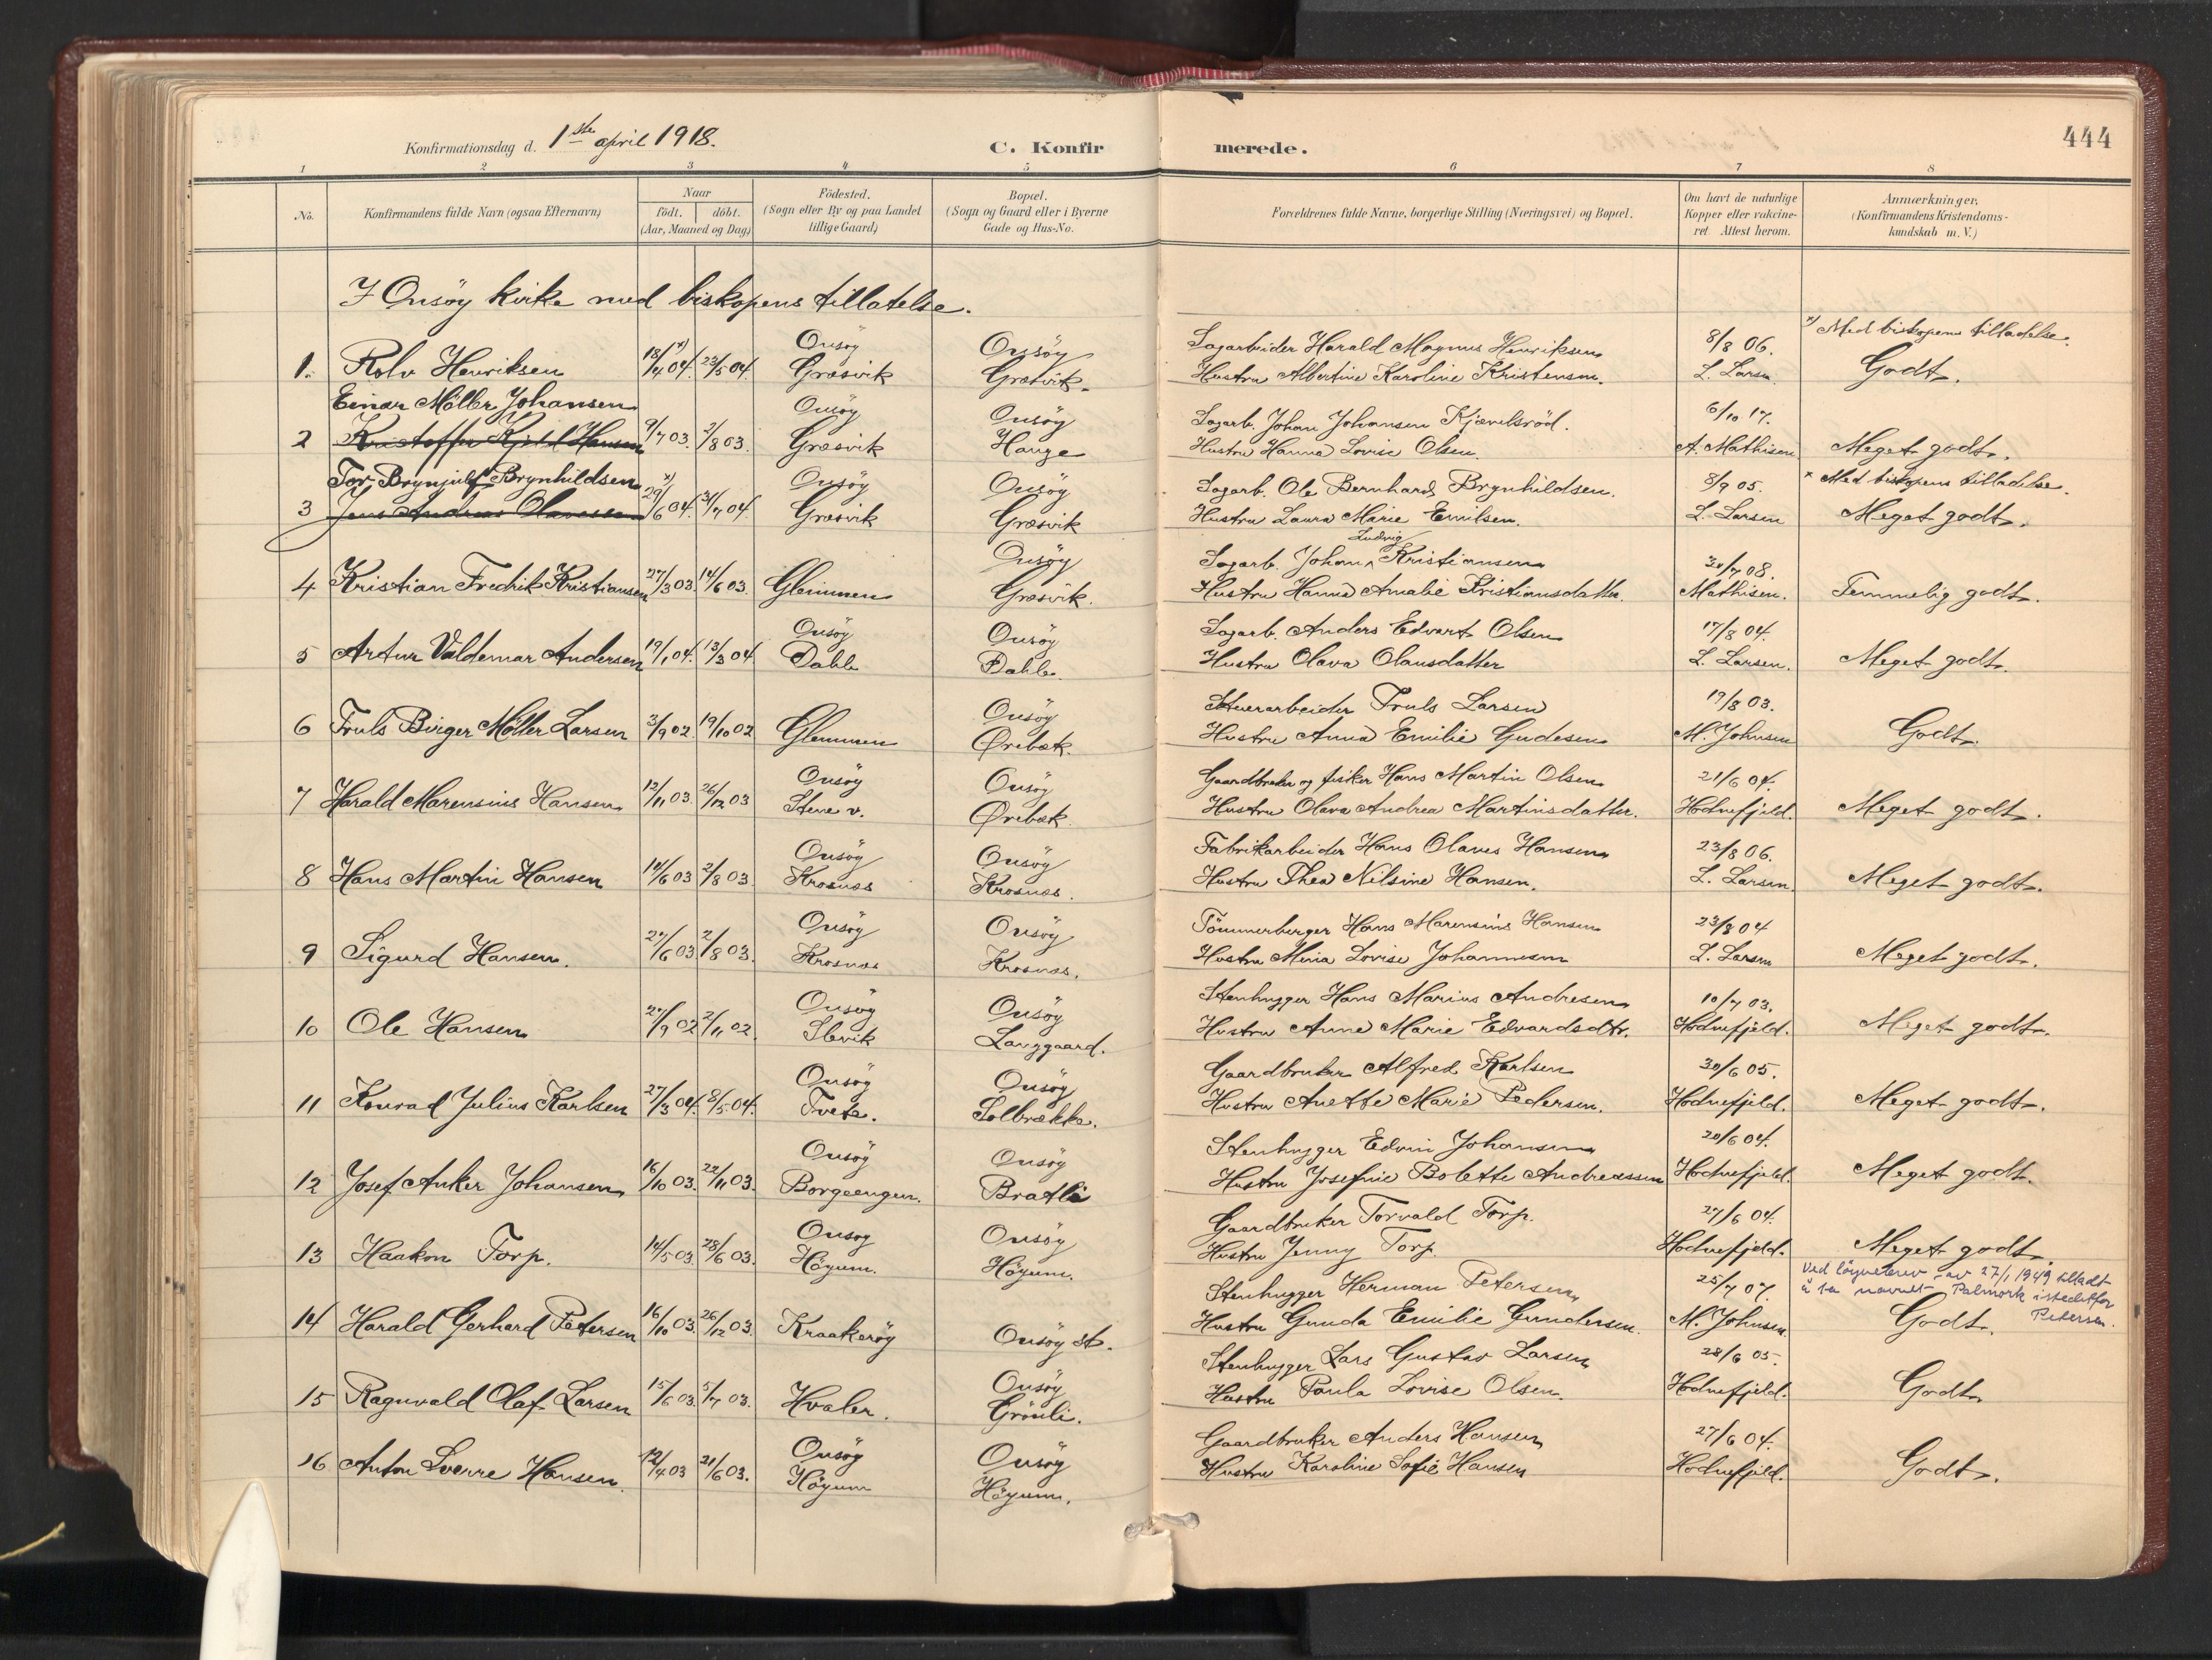 444
Konfirmationsdag d. 1ste april 1918.
C. Konfirmerede.
1 2 3 4 5 6 7 8
No.
Konfirmandens fulde Navn (ogsaa Efternavn)
Naar
födt. döbt.
(Aar, Maaned og Dag)
Födested.
(Sogn eller By og paa Landet
tillige Gaard)
Bopæl.
(Sogn og Gaard eller i Byerne
Gade og Hus-No.
Forældrenes fulde Navne, borgerlige Stilling (Næringsvei) og Bopæl.
Om havt de naturlige
Kopper eller vakcine-
ret Attest herom.
Anmærkninger.
(Konfirmandens Kristendoms-
kundskab m. V.)
I Onsöy kirke med biskopens tillatelse.
Onsöy Onsöy Sagarbeider Harald Magnus Henriksen 8/8 06. x) Med biskopens tilladelse.
1. Rolv Henriksen 18/4 04. x) 23/5 04. Græsvik Græsvik. Hustru Albertine Karoline Kristensen. L. Larsen Godt.
Einar Möller Johansen Onsöy Onsöy Sagarb. Johan Johansen Kjærelsröd. 6/10 17.
2 Kristoffer Kjeld Hansen 9/7 03. 2/8 03. Græsvik Hauge Hustru Hanna Lovise Olsen. A. Mathisen Meget godt.
Tor Brynjulf Brynhildsen x) Onsöy Onsöy Sagarb. Ole Bernhard Brynhildsen. 8/9 05. x Med biskopens tilladelse.
3 Jens Andreas Olaussen 29/6 04. 31/7 04. Græsvik Græsvik Hustru Laura Marie Emilsen. L. Larsen Meget godt.
Onsöy Sagarb. Johan Ludvig Kristiansen 30/7 08.
4 Kristian Fredrik Kristiansen 27/3 03. 14/6 03. Glemmen Græsvik. Hustru Hanna Amalie Kristiansdatter. Mathisen. Temmelig godt.
Onsöy Onsöy Sagarb. Anders Edvart Olsen 17/8 04.
5 Artur Valdemar Andersen 19/1 04. 13/3 04 Dahle Dahle. Hustru Olava Olausdatter L. Larsen. Meget godt.
Onsöy Stuerarbeider Truls Larsen 19/8 03.
6 Truls Birger Möller Larsen 3/9 02. 19/10 02 Glemmen Ørebæk. Hustru Anna Emilie Gudesen M. Johnsen Godt.
Onsöy Onsöy Gaardbruker og fisker Hans Martin Olsen 21/6 04.
7 Harald Marensius Hansen 12/11 03. 26/12 03 Stene v. Ørebæk. Hustru Olava Andrea Martinsdatter. Hodnefjeld. Meget godt.
Onsöy Onsöy Fabrikarbeider Hans Olaves Hansen 23/8 06.
8 Hans Martin Hansen 14/6 03 2/8 03 Krosnæs Krosnæs. Hustru Thea Nilsine Hansen. L. Larsen. Meget godt.
Onsöy Onsöy Tömmerberger Hans Marensius Hansen 23/8 04
9 Sigurd Hansen. 27/6 03 2/8 03. Krosnæs Krosnæs. Hustru Mina Lovise Johannesen L. Larsen Meget godt.
Onsöy Onsöy Stenhugger Hans Marius Andresen 10/7 03.
10 Ole Hansen 27/9 02 2/11 02. Slevik Langgaard. Hustru Anne Marie Edvardsdtr. Hodnefjeld. Meget godt.
Onsöy Onsöy Gaardbruker Alfred Karlsen 30/6 05.
11 Konrad Julius Karlsen 27/3 04. 8/5 04. Tvete. Solbrække. Hustru Anette Marie Pedersen. Hodnefjeld. Meget godt.
Onsöy Onsöy Stenhugger Edvin Johansen 20/6 04.
12 Josef Anker Johansen 16/10 03. 22/11 03. Borgeengen. Bratli Hustru Josefine Bolette Andreassen Hodnefjeld. Meget godt.
Onsöy Onsöy Gaardbruker Torvald Torp. 27/6 04.
13 Haakon Torp. 14/5 03. 28/6 03. Höyum. Höyum. Hustru Jenny Torp Hodnefjeld. Meget godt.
Stenhugger Herman Petersen 25/7 07. Ved løyvebrev av 27/1 1949 tilladt
å ta navnet Palmork istedetfor
Petersen.
14 Harald Gerhard Petersen 16/10 03. 26/12 03. Kraakeröy Onsöy st. Hustru Gunda Emilie Gundersen. M. Johnsen. Godt.
Onsöy Stenhugger Lars Gustav Larsen 28/6 05.
15 Ragnvald Olaf Larsen 15/6 03. 5/7 03. Hvaler. Grönli. Hustru Paula Lovise Olsen. Hodnefjeld. Godt
Onsöy Onsöy Gaardbruker Anders Hansen 27/6 04.
16 Anton Sverre Hansen. 12/4 03 21/6 03. Höyum Höyum. Hustru Karoline Sofie Hansen Hodnefjeld. Godt.